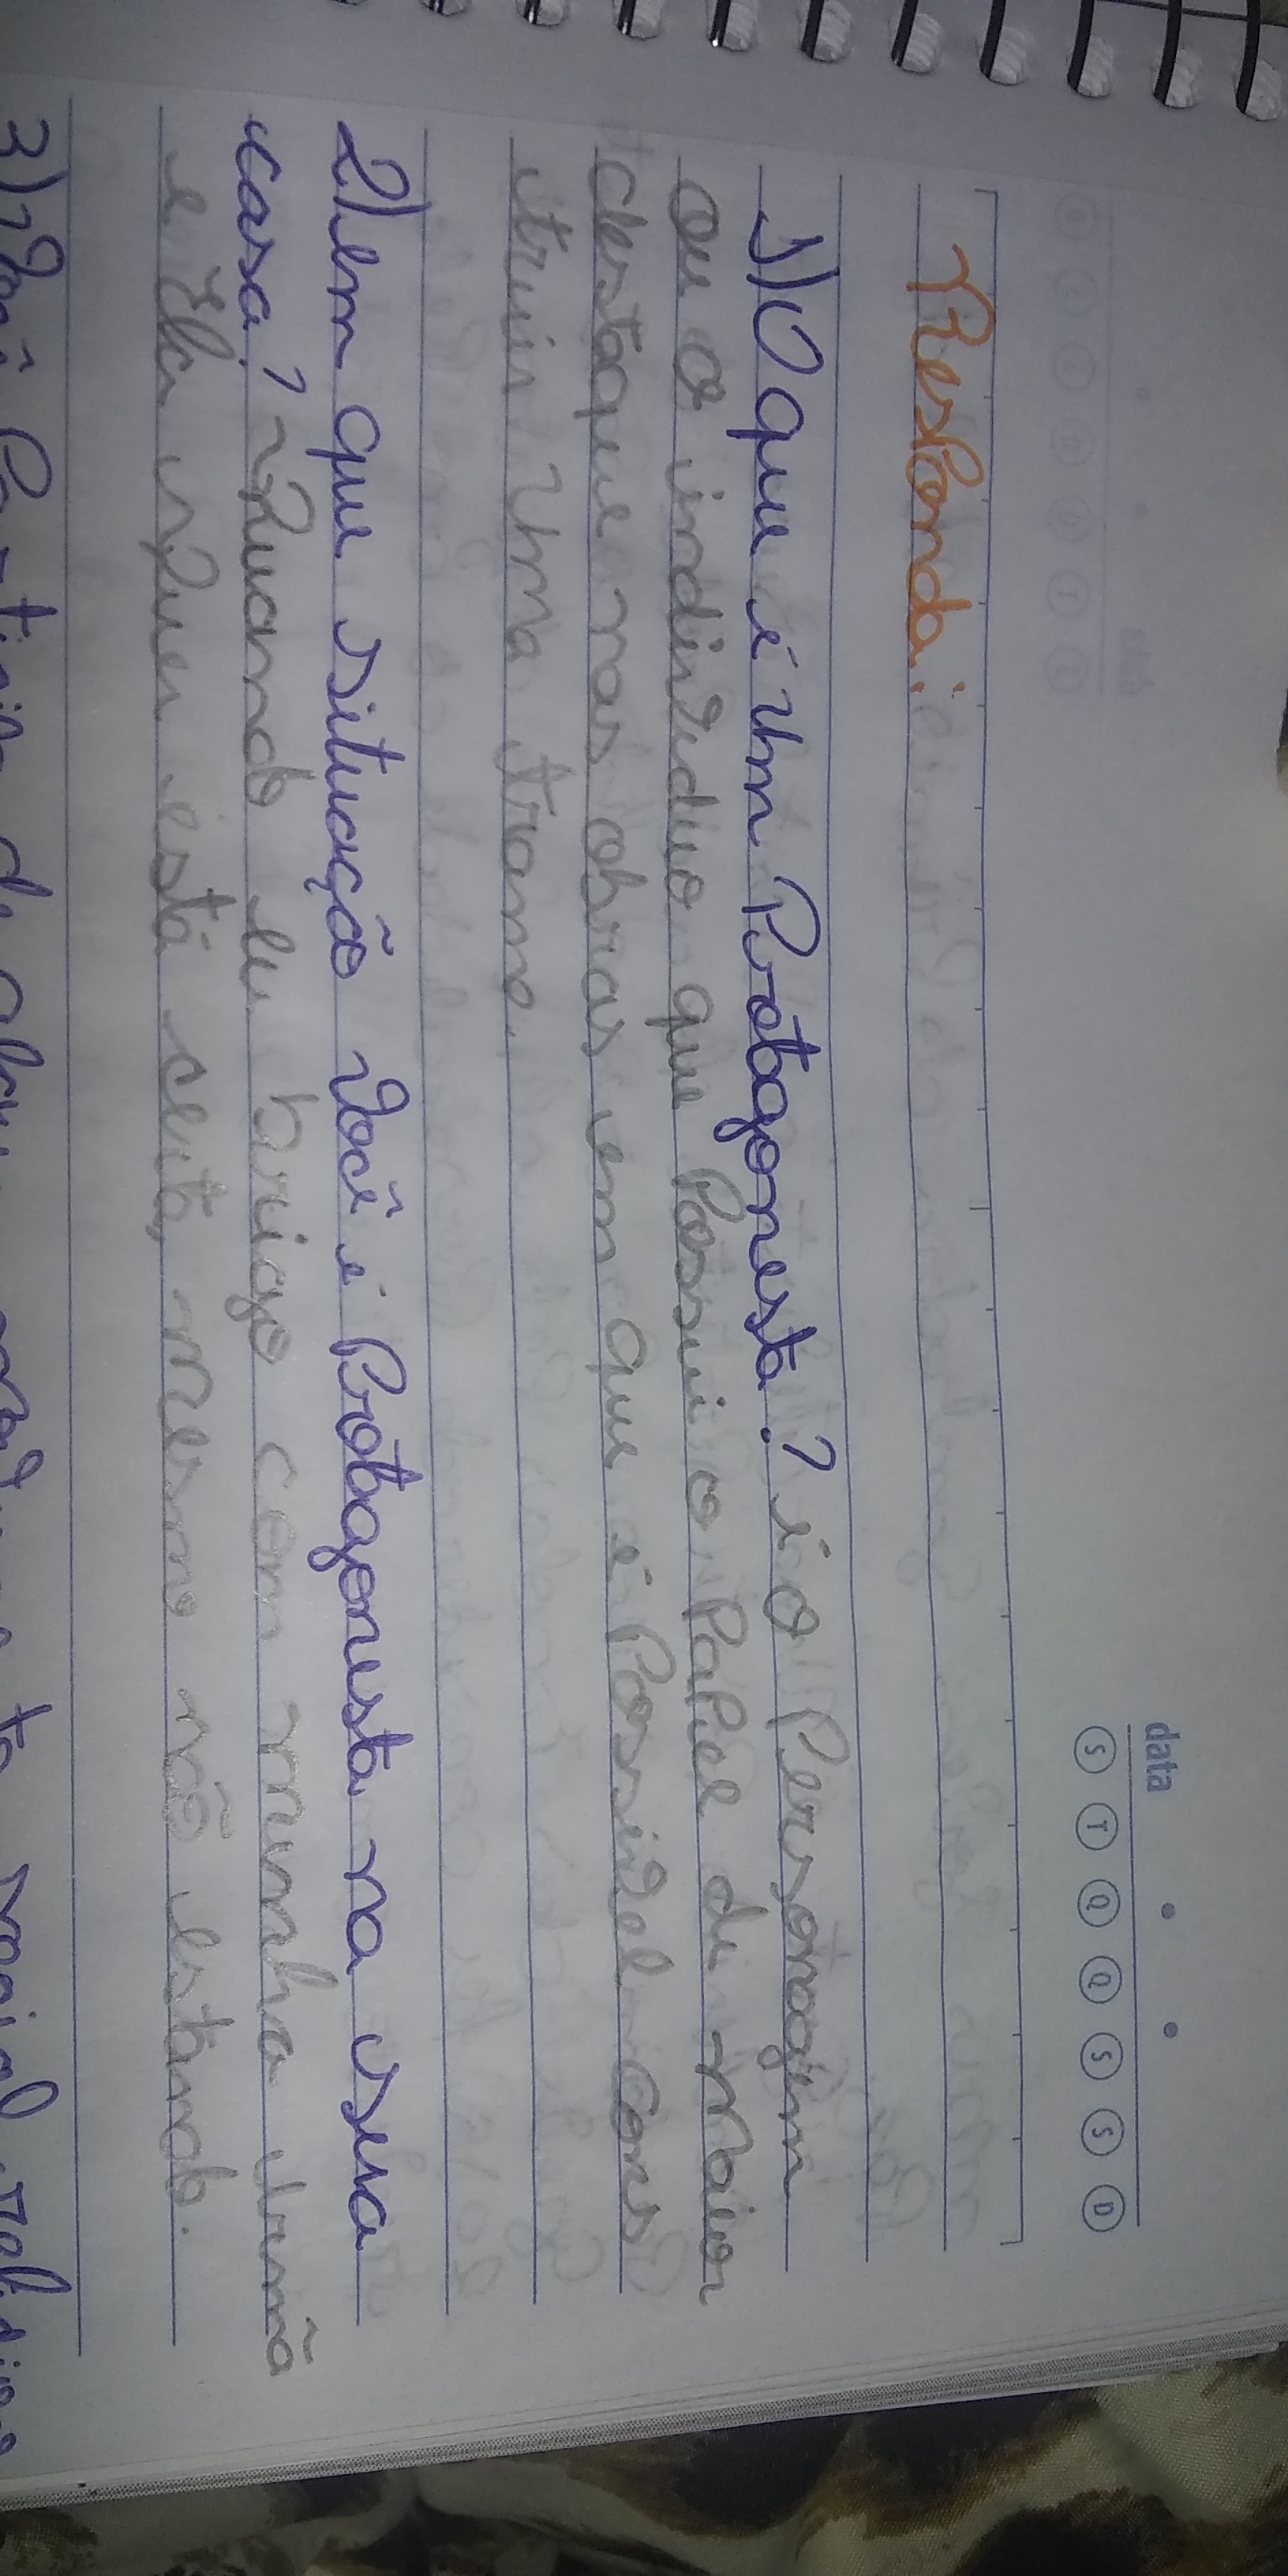 data
S T Q Q S S D
Responda:
1) O que é um Protagonista? é o Personagem
ou o indivíduo que Possui o PaPel de maior
destaque nas obras em que é Possível cons
truir uma trama.
2) Em que situação você é Protagonista na sua
casa? Quando eu brigo com minha irmã
e ela quer está certa, mesmo não estando.
3) Você